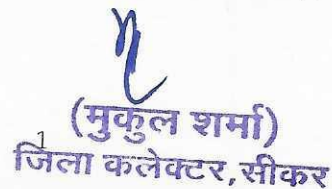 (मुकुल शर्मा)
1
जिला कलेक्टर,सीकर